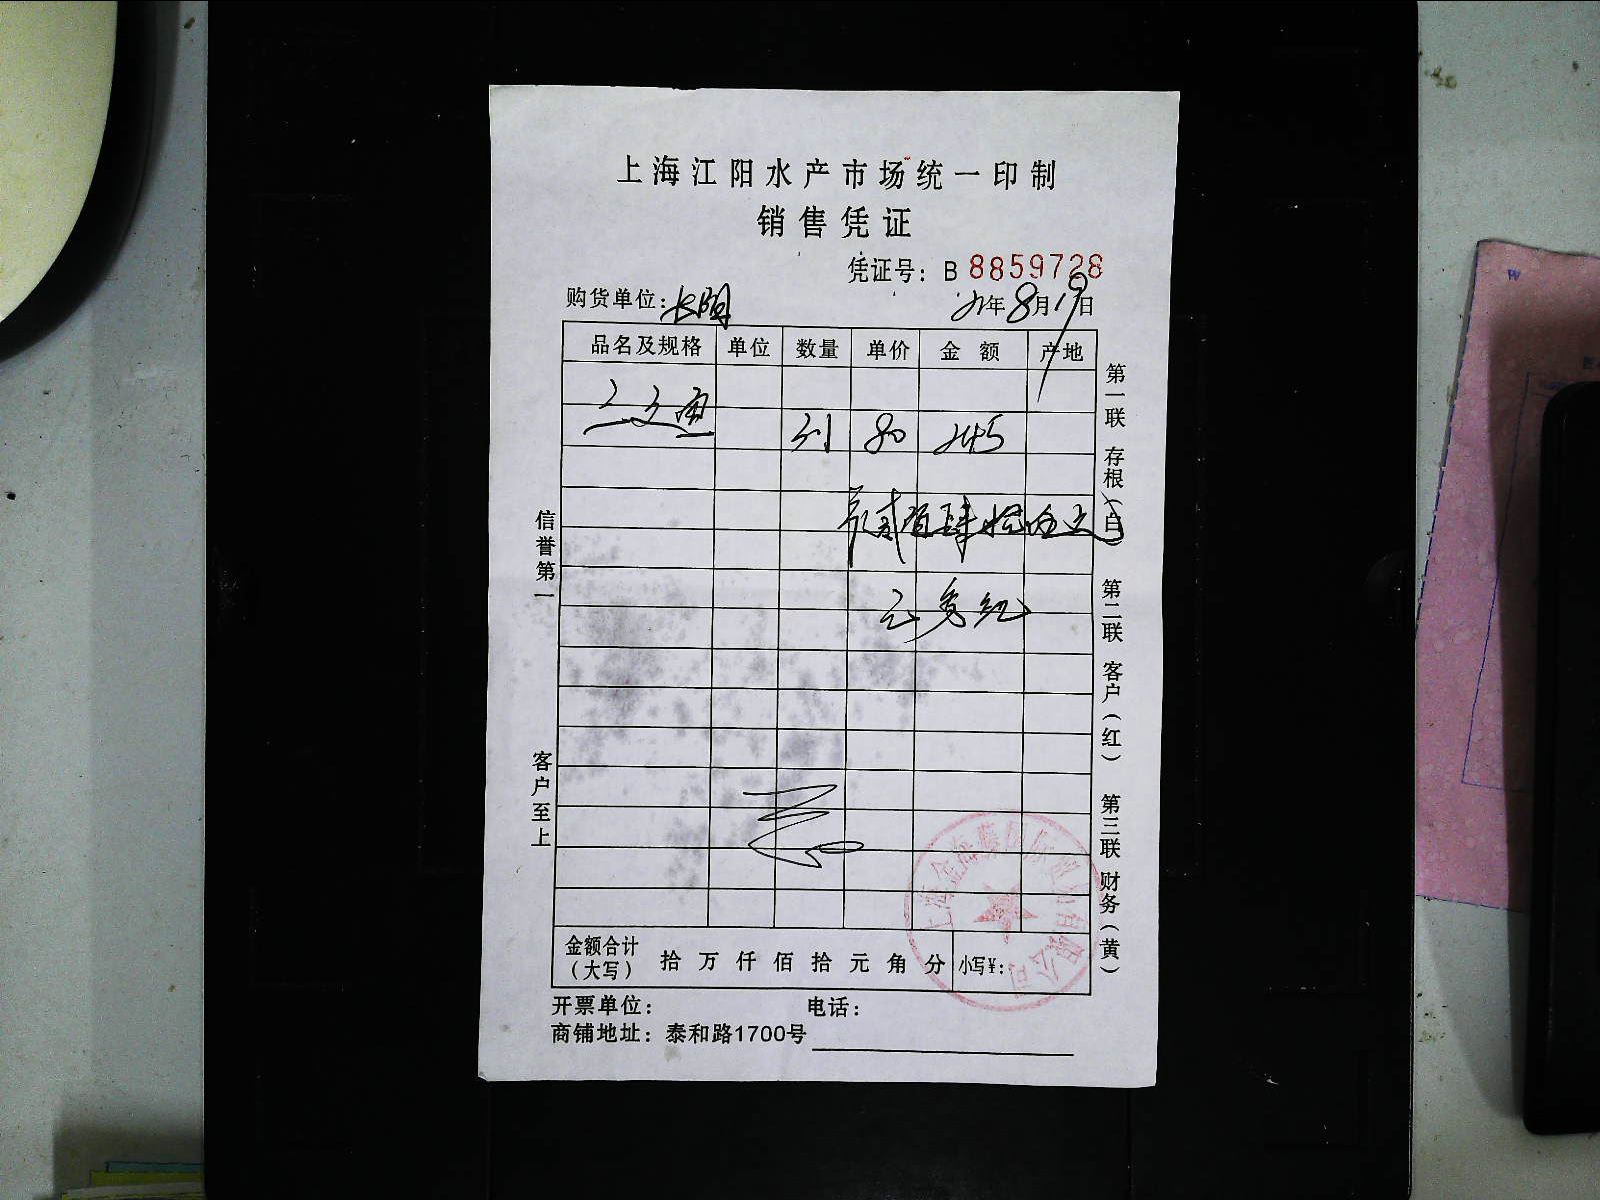 上海江阳水产市场统一印制
销售凭证
凭证号：B 8859728
购货单位：长明 21年8月19日
品名及规格 单位 数量 单价 金额 产地
80 245
贰佰肆拾伍元
信誉第一
客户至上
第一联 存根（白）
第二联 客户（红）
第三联 财务（黄）
金额合计（大写） 拾 万 仟 佰 拾 元 角 分 小写￥：
开票单位： 电话：
商铺地址：泰和路1700号